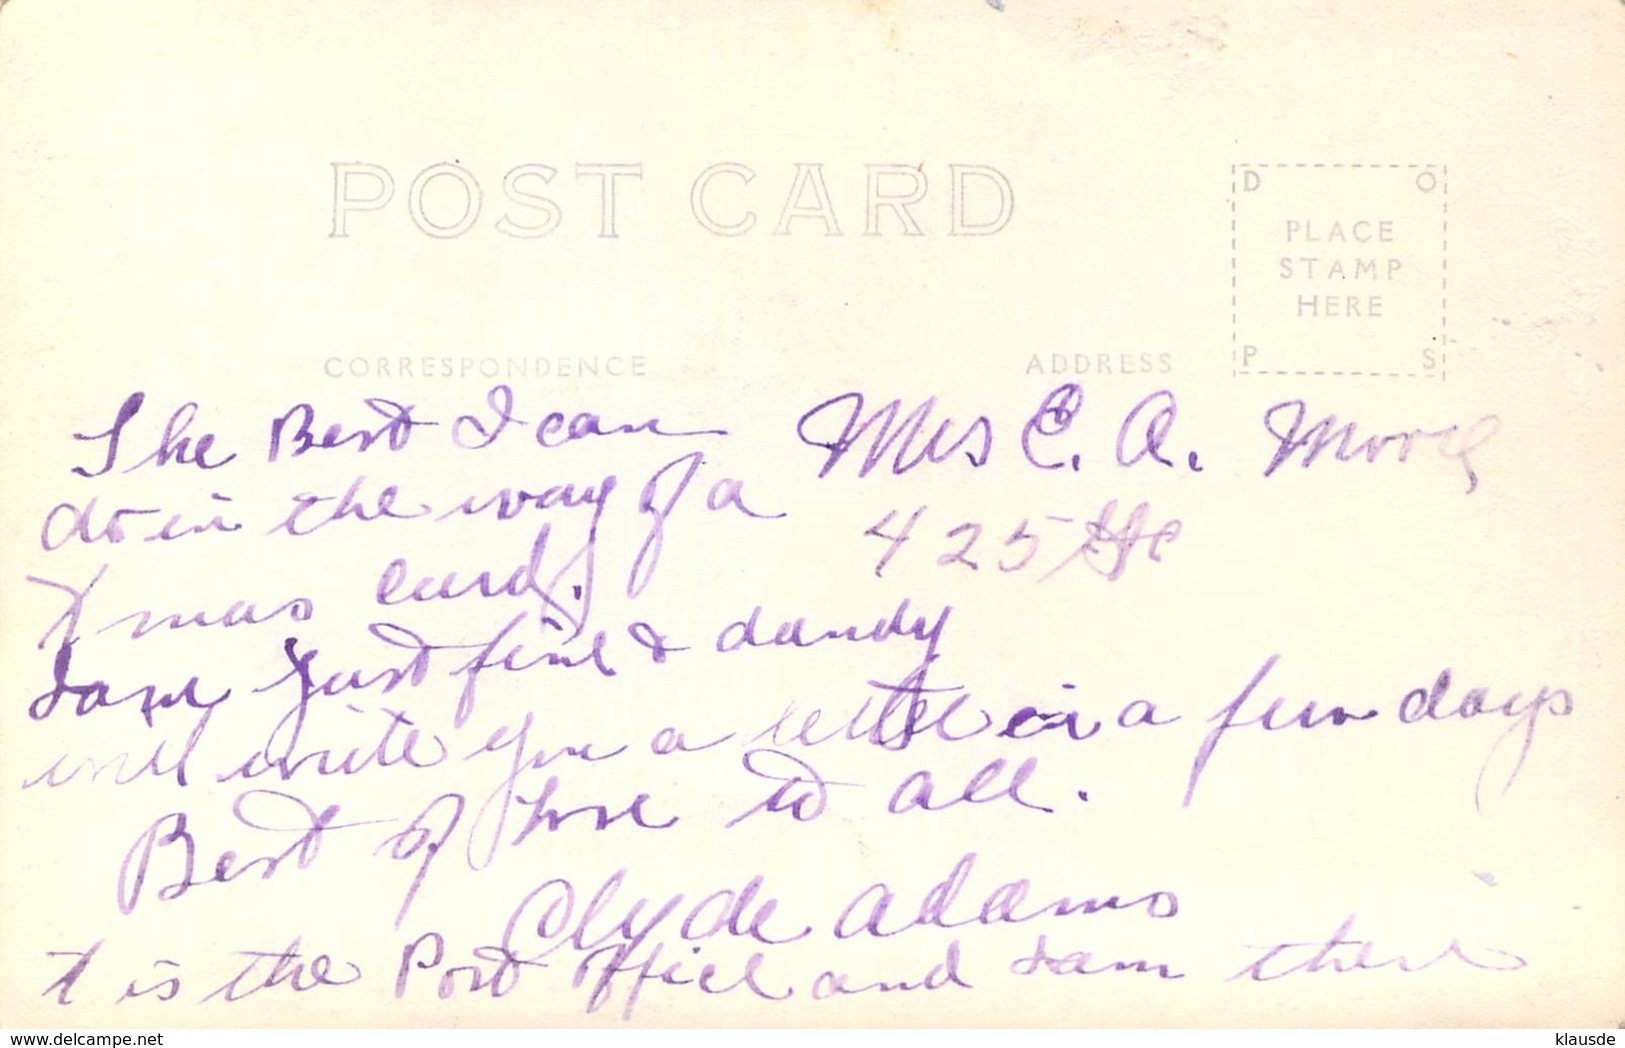 POST CARD
D O
PLACE
STAMP
HERE
P S
CORRESPONDENCE
ADDRESS
The Best I can
do in the way of a
Xmas card.
I am just fine & dandy
will write you a letter in a few days
Best of love to all.
Clyde Adams
t is the Post Office and I am there
Mrs E. A.
425
delcampe.net
klausde